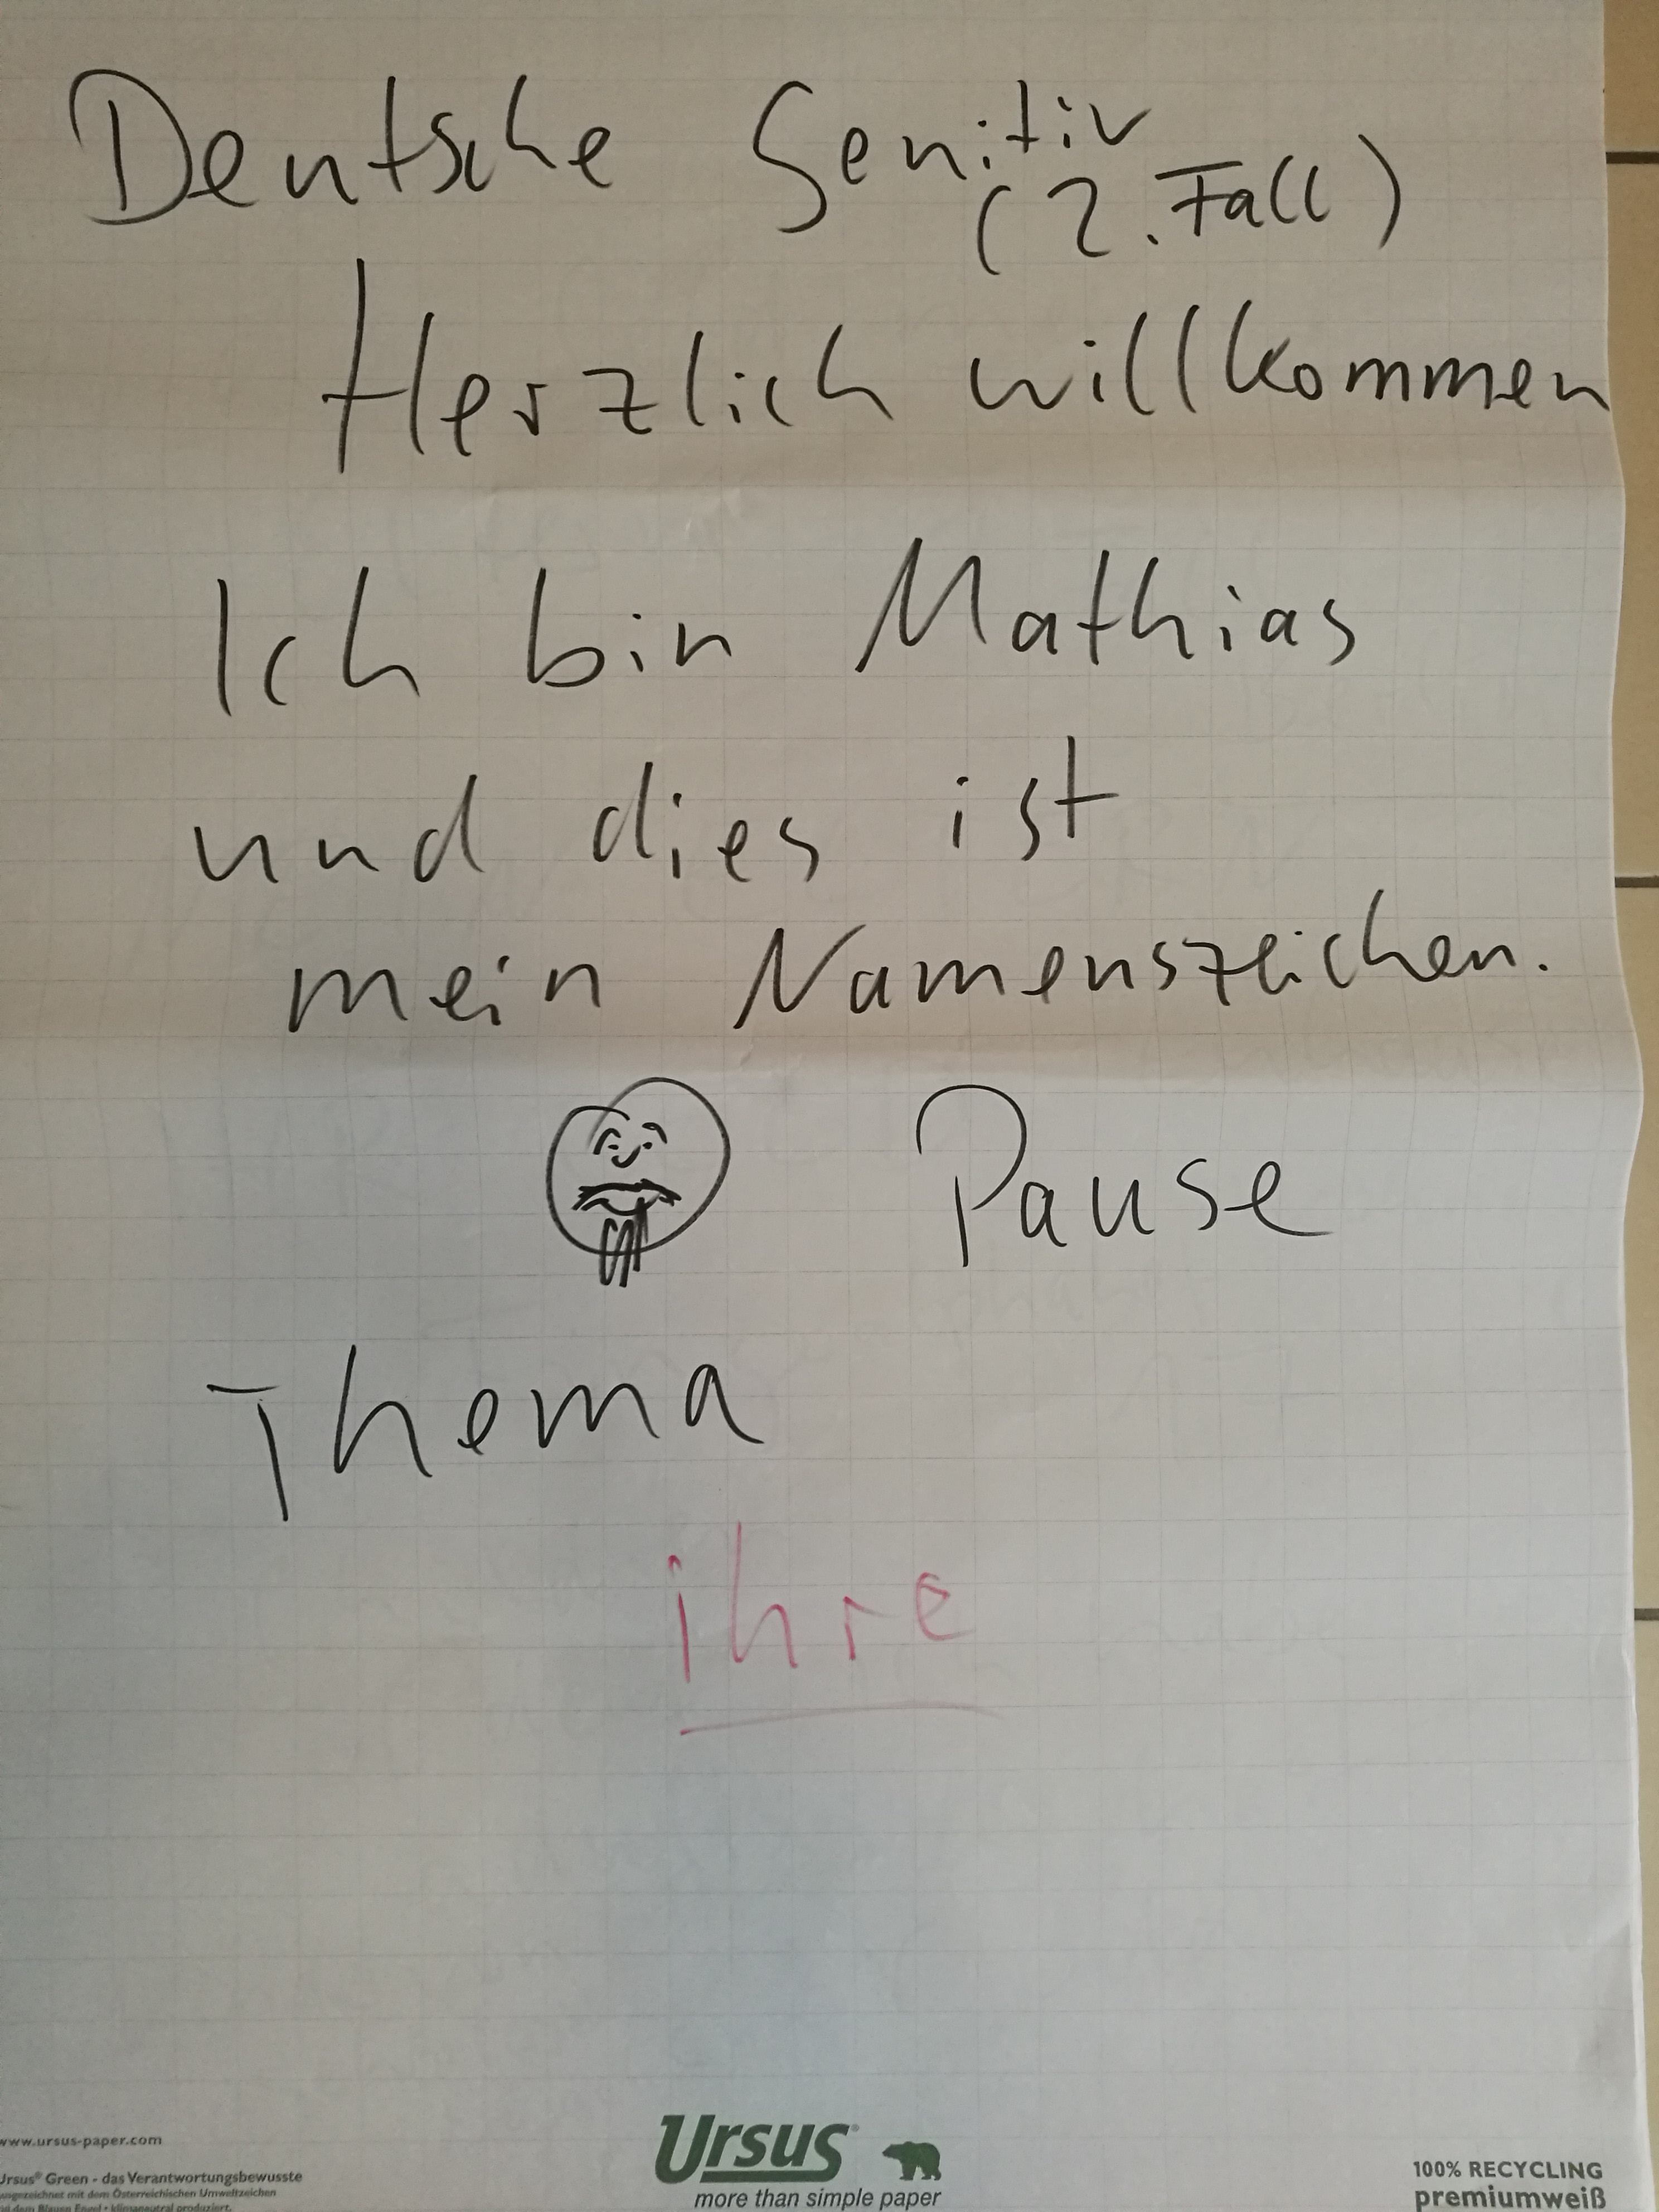 Deutsche Genitiv
(2. Fall)
Herzlich willkommen
Ich bin Mathias
und dies ist
mein Namenszeichen.
Pause
Thema
ihre
www.ursus-paper.com
Ursus® Green - das Verantwortungsbewusste
ausgezeichnet mit dem Österreichischen Umweltzeichen
und dem Blauen Engel • klimaneutral produziert.
Ursus®
more than simple paper
100% RECYCLING
premiumweiß